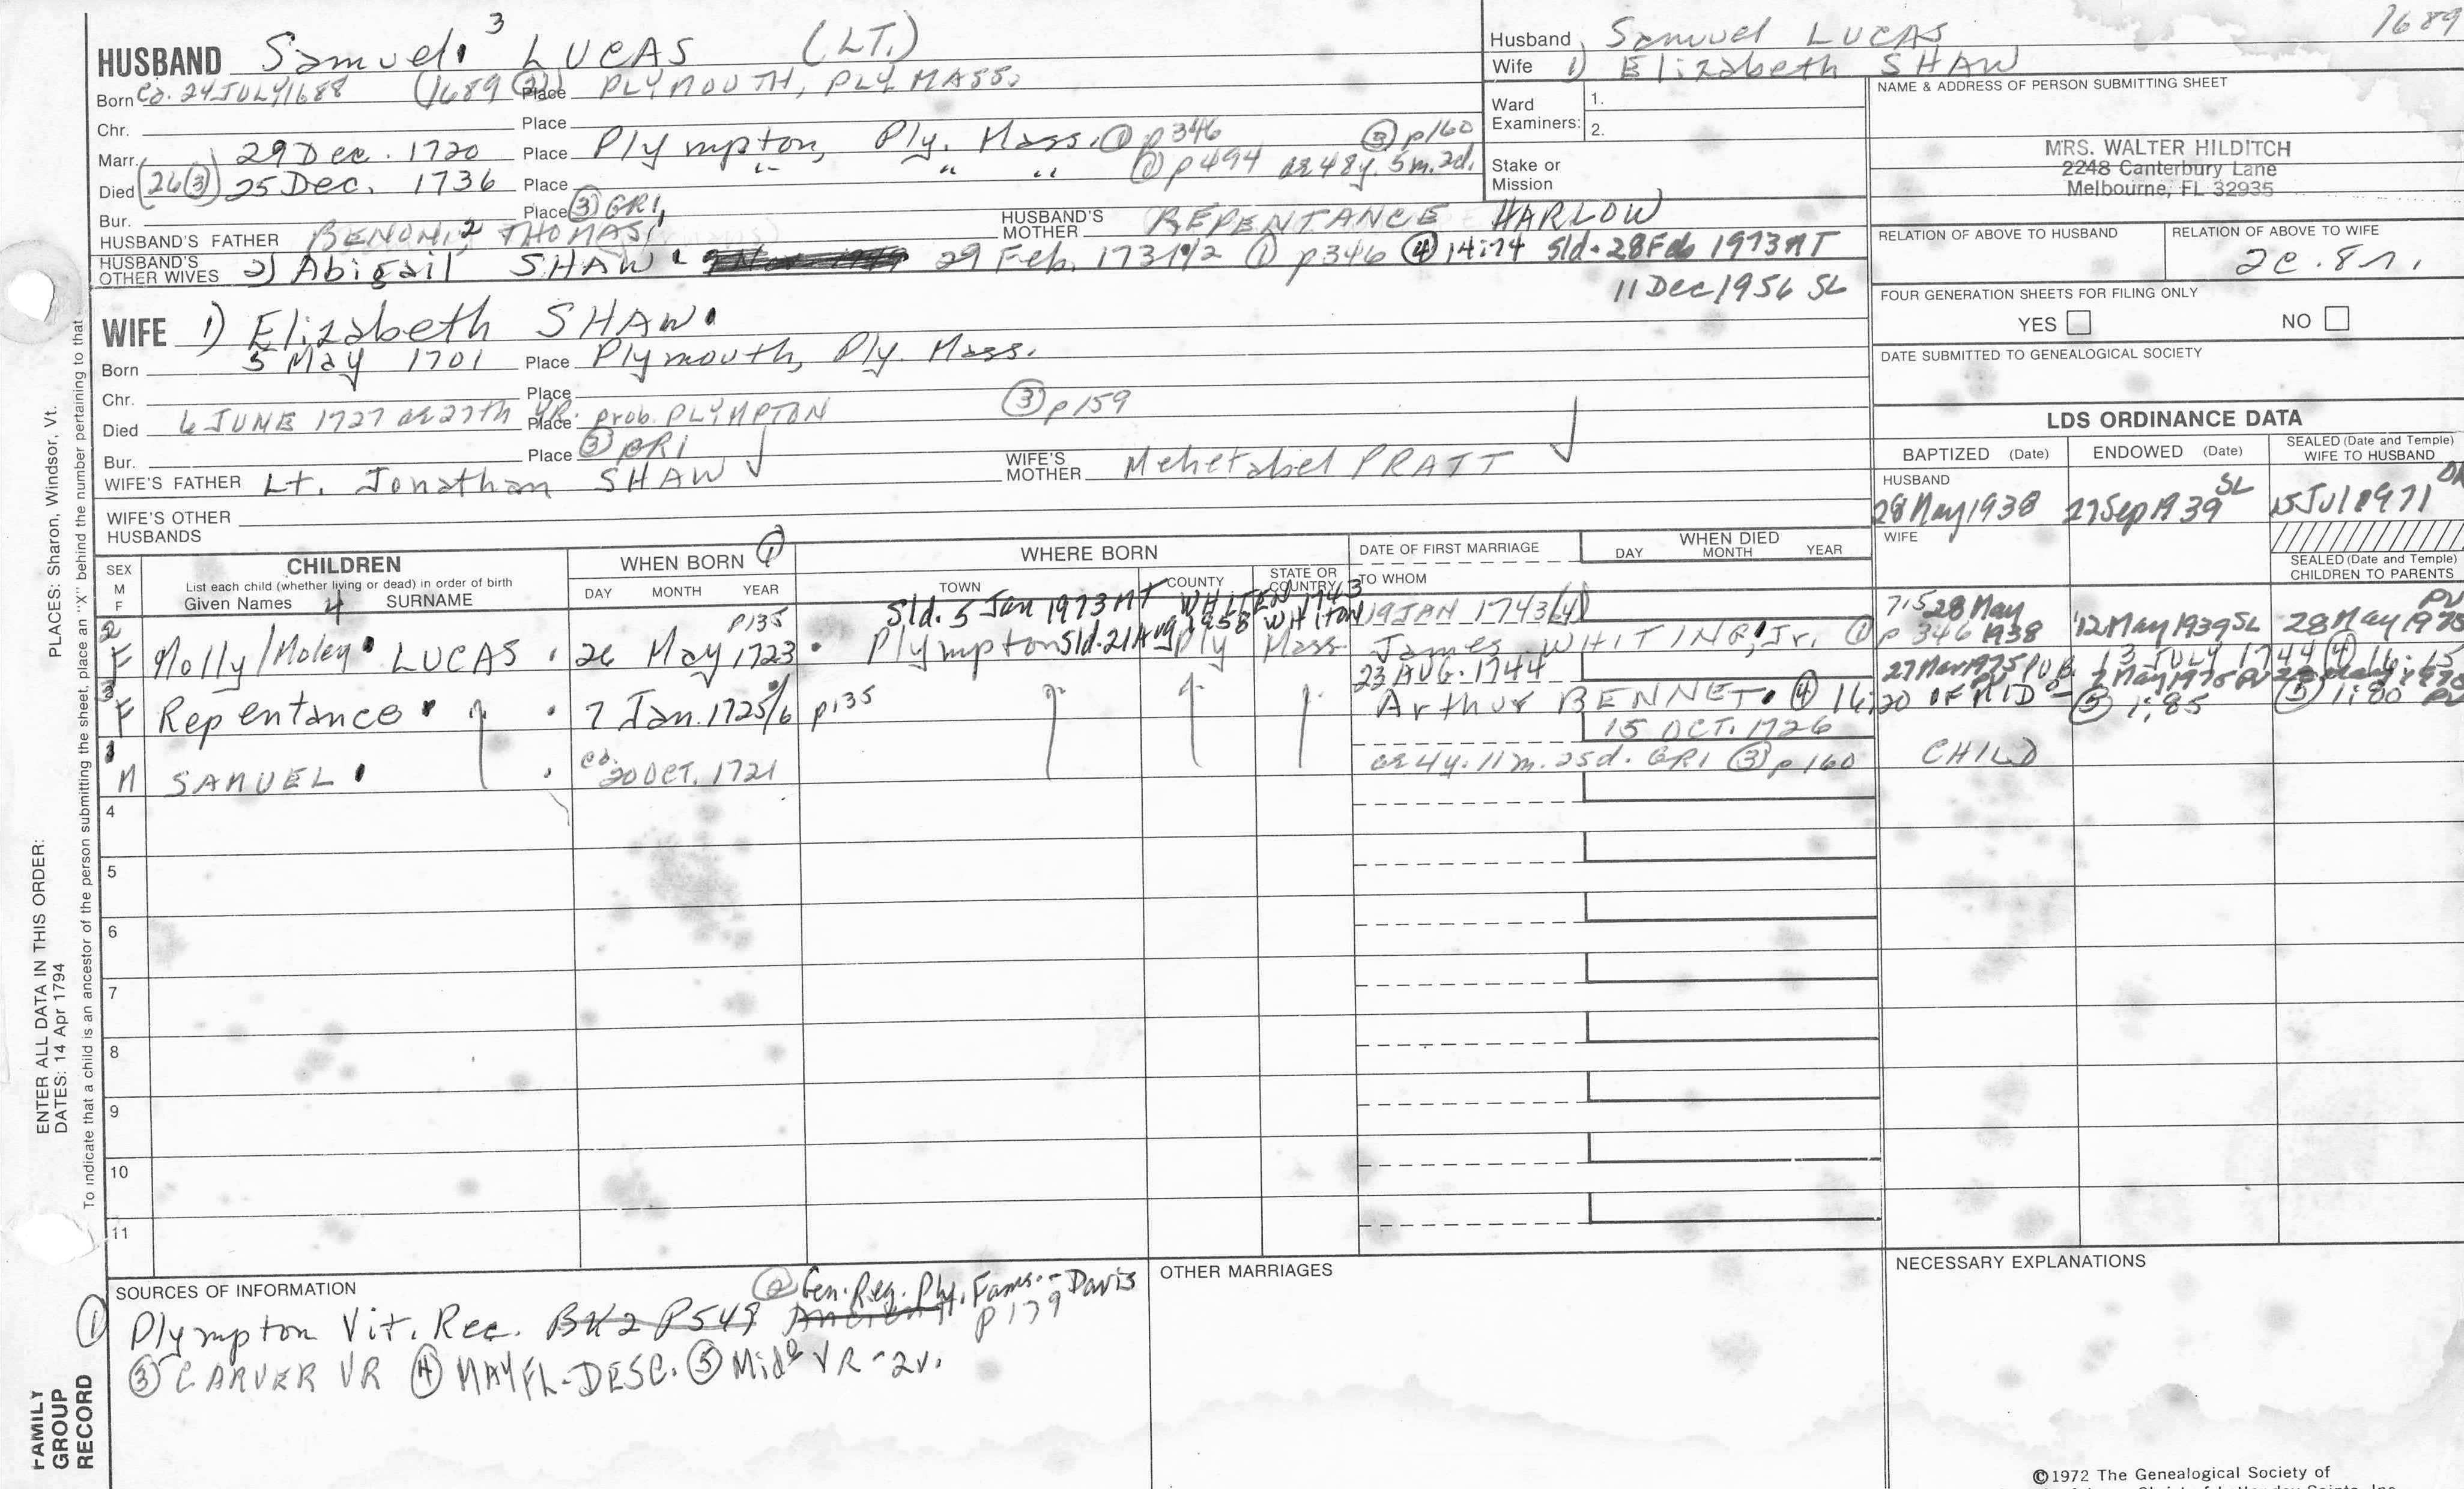 HUSBAND Samuel 3 LUCAS (LT.)
Born Ca. 24 JULY 1688 (1689 ②) Place PLYMOUTH, PLY MASS.
Chr. Place
Marr. 29 Dec. 1720 Place Plympton, Ply. Mass. ① p346 ③ p160
Died (26 ③) 25 Dec. 1736 Place " " " ① p494 ae 48y. 5m. 2d.
Bur. Place ③ GR1,
HUSBAND'S FATHER BENONI, 2 THOMAS 1 HUSBAND'S MOTHER REPENTANCE HARLOW
HUSBAND'S OTHER WIVES 2) Abigail SHAW 29 Feb. 1731/2 ① p346 ④ 14:74 Sld. 28 Feb 1973 MT
11 Dec 1956 SL
WIFE 1) Elizabeth SHAW
Born 5 May 1701 Place Plymouth, Ply. Mass.
Chr. Place
Died 6 JUNE 1727 ae 27th YR. Place prob. PLYMPTON ③ p159
Bur. Place ③ GR1
WIFE'S FATHER Lt. Jonathan SHAW WIFE'S MOTHER Mehetabel PRATT
WIFE'S OTHER HUSBANDS
Husband Samuel LUCAS 1689
Wife 1) Elizabeth SHAW
Ward Examiners: 1.
2.
Stake or Mission
NAME & ADDRESS OF PERSON SUBMITTING SHEET
MRS. WALTER HILDITCH
2248 Canterbury Lane
Melbourne, FL 32935
RELATION OF ABOVE TO HUSBAND RELATION OF ABOVE TO WIFE
2c. 8r.
FOUR GENERATION SHEETS FOR FILING ONLY
YES NO
DATE SUBMITTED TO GENEALOGICAL SOCIETY
LDS ORDINANCE DATA
BAPTIZED (Date) ENDOWED (Date) SEALED (Date and Temple) WIFE TO HUSBAND
HUSBAND
28 May 1938 27 Sep 1939 SL 15 Jul 1971
WIFE
SEALED (Date and Temple) CHILDREN TO PARENTS
SEX M F CHILDREN WHEN BORN ① WHERE BORN DATE OF FIRST MARRIAGE WHEN DIED
List each child (whether living or dead) in order of birth
Given Names 4 SURNAME DAY MONTH YEAR TOWN COUNTY STATE OR COUNTRY TO WHOM DAY MONTH YEAR
Sld. 5 Jan 1973 MT WHITEN 1743 19 JAN 1743(4)
2 F Molly/Moley LUCAS 26 May 1723 p135 Plympton Sld. 21 Aug 1958 WHITON Ply Mass James WHITING, Jr. ① p 346 28 May 1938 12 May 1939 SL 28 May 1975 PV
23 AUG. 1744 27 Mar 1975 PV 13 JULY 1744 ④ 16:15
3 F Repentance " 7 Jan. 1725/6 p135 " " " Arthur BENNET ④ 16:20 OF MID⁰ ⑤ 1:85 2 May 1975 PV ⑤ 1:80
15 OCT. 1726
1 M SAMUEL " ca. 20 OCT. 1721 " " " ae 4y. 11m. 25d. GR1 ③ p160 CHILD
4
5
6
7
8
9
10
11
SOURCES OF INFORMATION
② Gen. Reg. Ply. Fams. - Davis p179
① Plympton Vit. Rec. BK2 P549
③ CARVER VR ④ MAYFL-DESC. ⑤ Mid⁰ VR - 2v.
OTHER MARRIAGES
NECESSARY EXPLANATIONS
©1972 The Genealogical Society of
PLACES: Sharon, Windsor, Vt.
ENTER ALL DATA IN THIS ORDER:
DATES: 14 Apr 1794
To indicate that a child is an ancestor of the person submitting the sheet, place an "X" behind the number pertaining to that
FAMILY GROUP RECORD